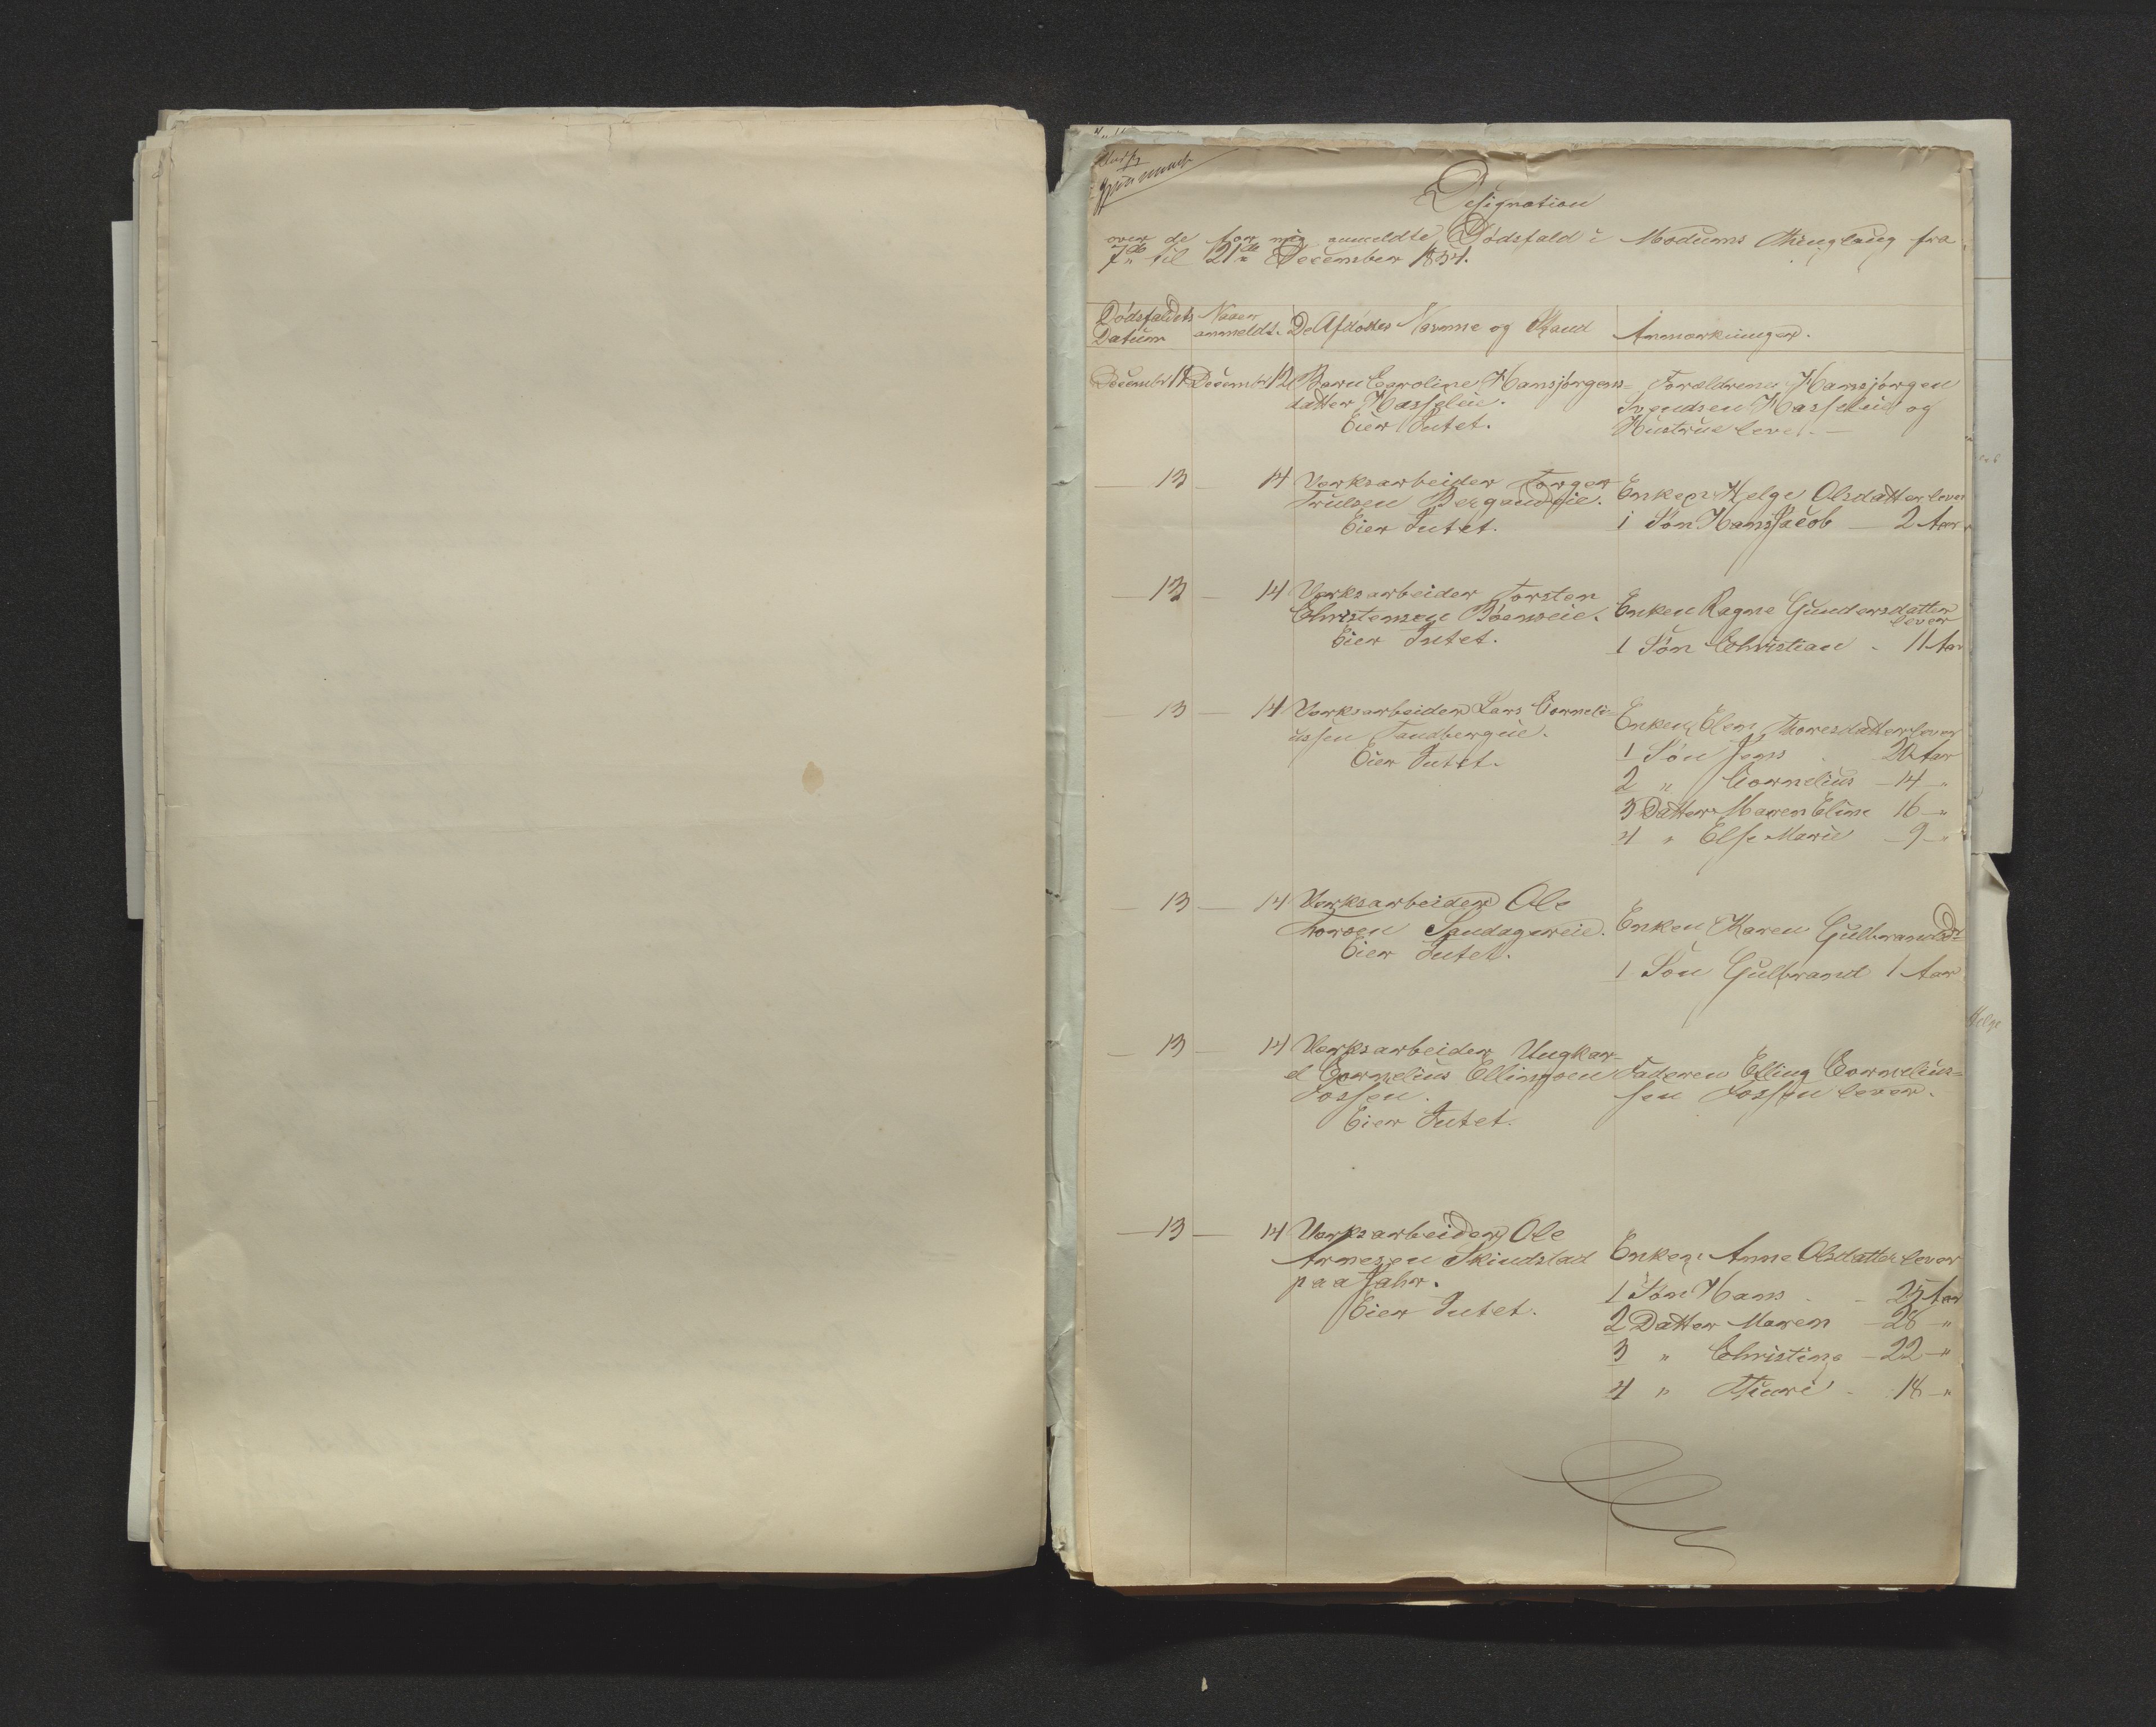 Designation
over de for mig anmeldte Dødsfald i Modums Thinglaug fra
7de til 21de December 1854.
Dødsfaldets Datum
Naar anmeldt.
De Afdødes Navne og Stand
Anmærkninger.
December 12 December 12 Barn Caroline Hansjørgens=
datter Hasselen.
Eier Intet.
Forældrene Hansjørgen
Svendsen Hasseleie og
Hustrue lever.
— 13 — 14 Værksarbeider Torger
Trulsen Bergandeie.
Eier Intet.
Enken Helge Olsdatter lever
1 Søn Hans Jacob — 2 Aar
— 13 — 14 Værksarbeider Torsten
Christensen Bøenseie.
Eier Intet.
Enken Ragne Gundersdatter
lever
1 Søn Christian - 11 Aar
— 13 — 14 Værksarbeider Lars Corneli=
ussen Tandbergeie.
Eier Intet.
Enken Elen Thoresdatter lever
1 Søn Jens 20 Aar
2 " Cornelius — 14 — "
3 Datter Maren Eline 16 — "
4 " Else Marie — 9 — "
— 13 — 14 Værksarbeider Ole
Thorsen
Eier Intet.
Enken Karen Gulbrandsdr
1 Søn Gulbrand 1 Aar
— 13 — 14 Værksarbeider Ungkar=
l Cornelius Ellingsen
Fossen.
Eier Intet.
Faderen Elling Cornelius=
sen Fossen lever.
— 13 — 14 Værksarbeider Ole
Arnesen Skindstad
paa Jahr.
Eier Intet.
Enken Anne Olsdatter lever
1 Søn Hans - - 25 Aar
2 Datter Maren — 28 — "
3 " Christine — 22 — "
4 " - 18 — "